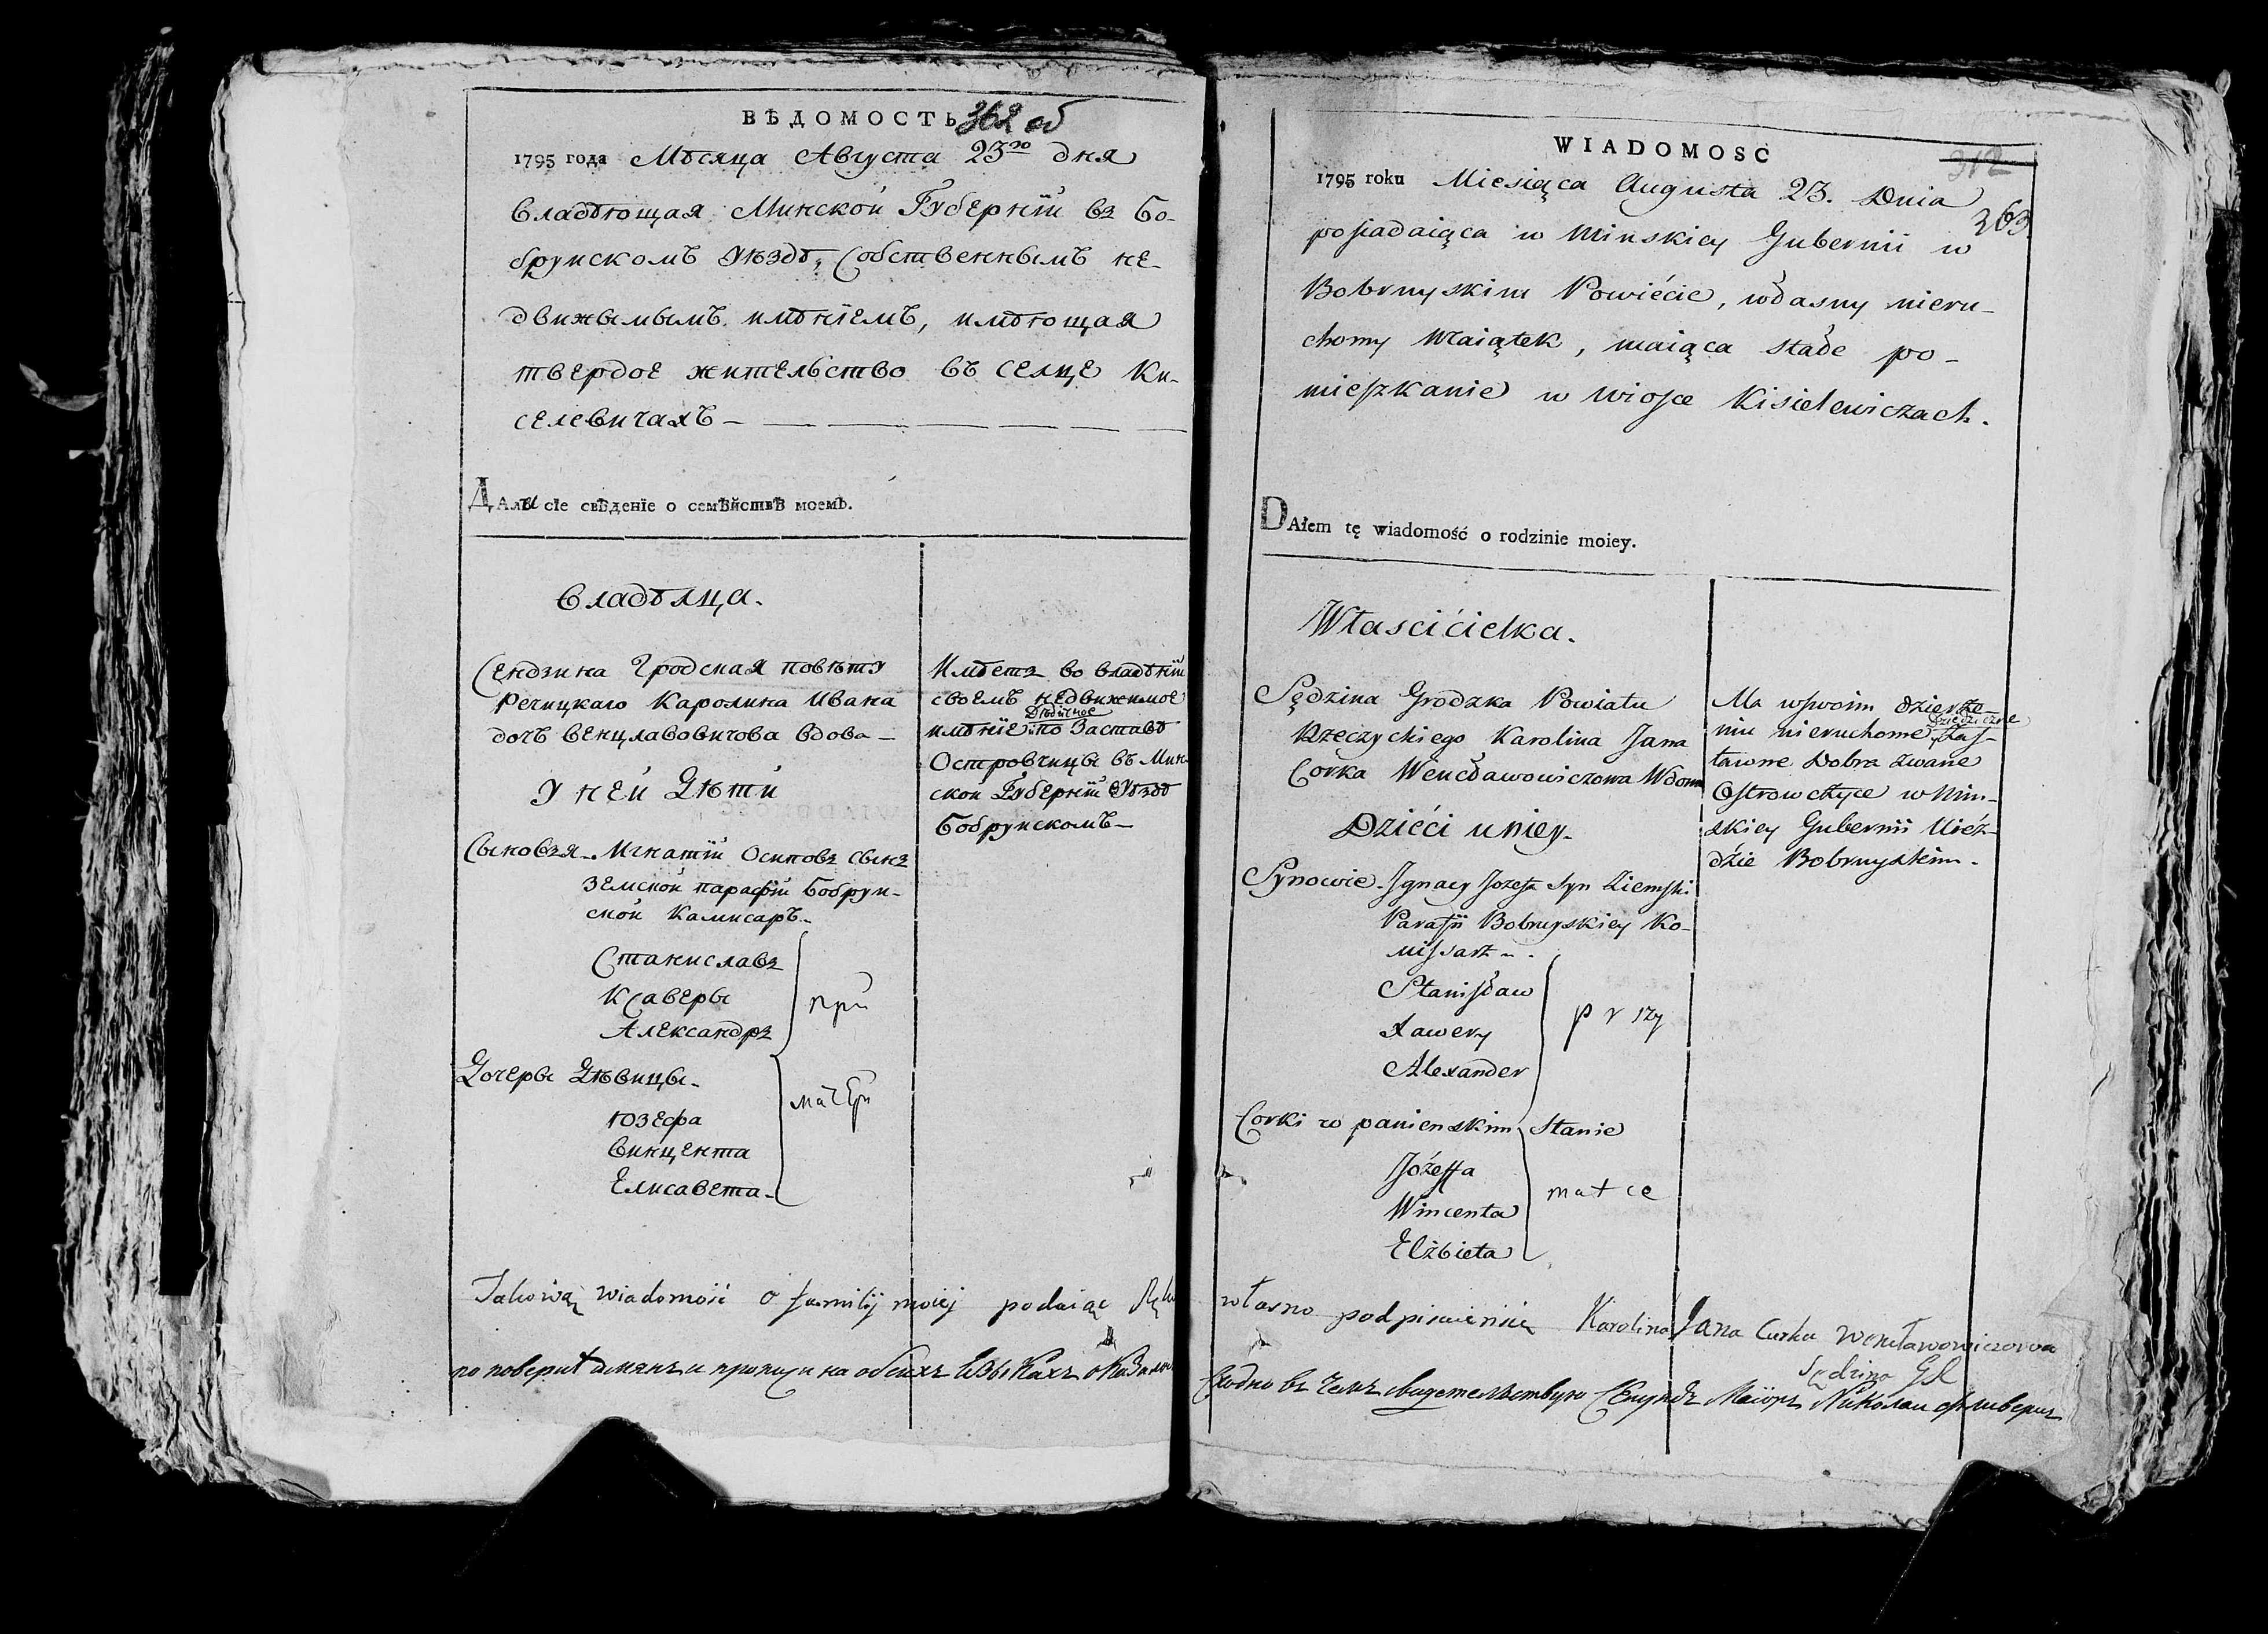 ВѢДОМОСТЬ 362 об
1795 года Мѣсяца Августа 23го дня
Владѣющая Минской Губернїи въ Бо-
бруйскомъ Уѣздѣ, Собственнымъ не-
движымымъ имѣнїемъ, имѣющая
твердое жительство въ селце Ки-
селевичахъ —
ДАлѣ сїе свѣденїе о семѣйствѣ моемъ.
Владѣлца.
Сендзина Гродская повѣту
Речицкаго Каролина Ивана
дочъ Венцлавовичова вдова —
У ней Дѣти
Сыновъя. Игнатїй Осиповъ сынъ
земской парафїи Бобруй-
ской Камисаръ.
Станиславъ
Ксаверы
Александръ
при
Дочеры Дѣвицы.
Юзефа
Винцента
Елисавета.
матери
Имѣетъ во владѣнїи
своемъ недвижимое
Дѣдичное
имѣнїе по Заставѣ
Островчицы въ Мин-
ской Губернїи Уѣздѣ
Бобруйскомъ —
WIADOMOSC
312
363
1795 roku Miesiąca Augusta 23. Dnia
posiadaiąca w Minskiey Gubernii w
Bobruyskim Powiécie, własny nieru-
chomy Maiątek, maiąca stałe po-
mieszkanie w Wiosce Kisielewiczach.
DAłem tę wiadomość o rodzinie moiey.
Włascićielka.
Sędzina Grodzka Powiatu
Rzeczyckiego Karolina Jana
Corka Wencławowiczowa Wdowa
Dzieći u niey.
Synowie. Jgnacy Jozefa Syn Ziemski
Parafii Bobruyskiey Ko-
missarz
Stanisław
Xawery
Alexander
przy
Corki w panienskim Stanie
Józeffa
Wincenta
Elżbieta
matce
Ma wswoim dzierże-
Dziedziczne
niu nieruchome Zas-
tawne Dobra zwane
Ostrowczyce w Min-
skiey Gubernii Uieź-
dźie Bobruyskim.
Takową wiadomość o familij moiej podaiąc Ręką własno podpisuie się Karolina Jana Curka Wencławowiczowa
Sędzina
по поверит и на обеихъ Езыкахъ оказалось Сходно въ чемъ Свидетельствую Секундъ Маіоръ Николаи